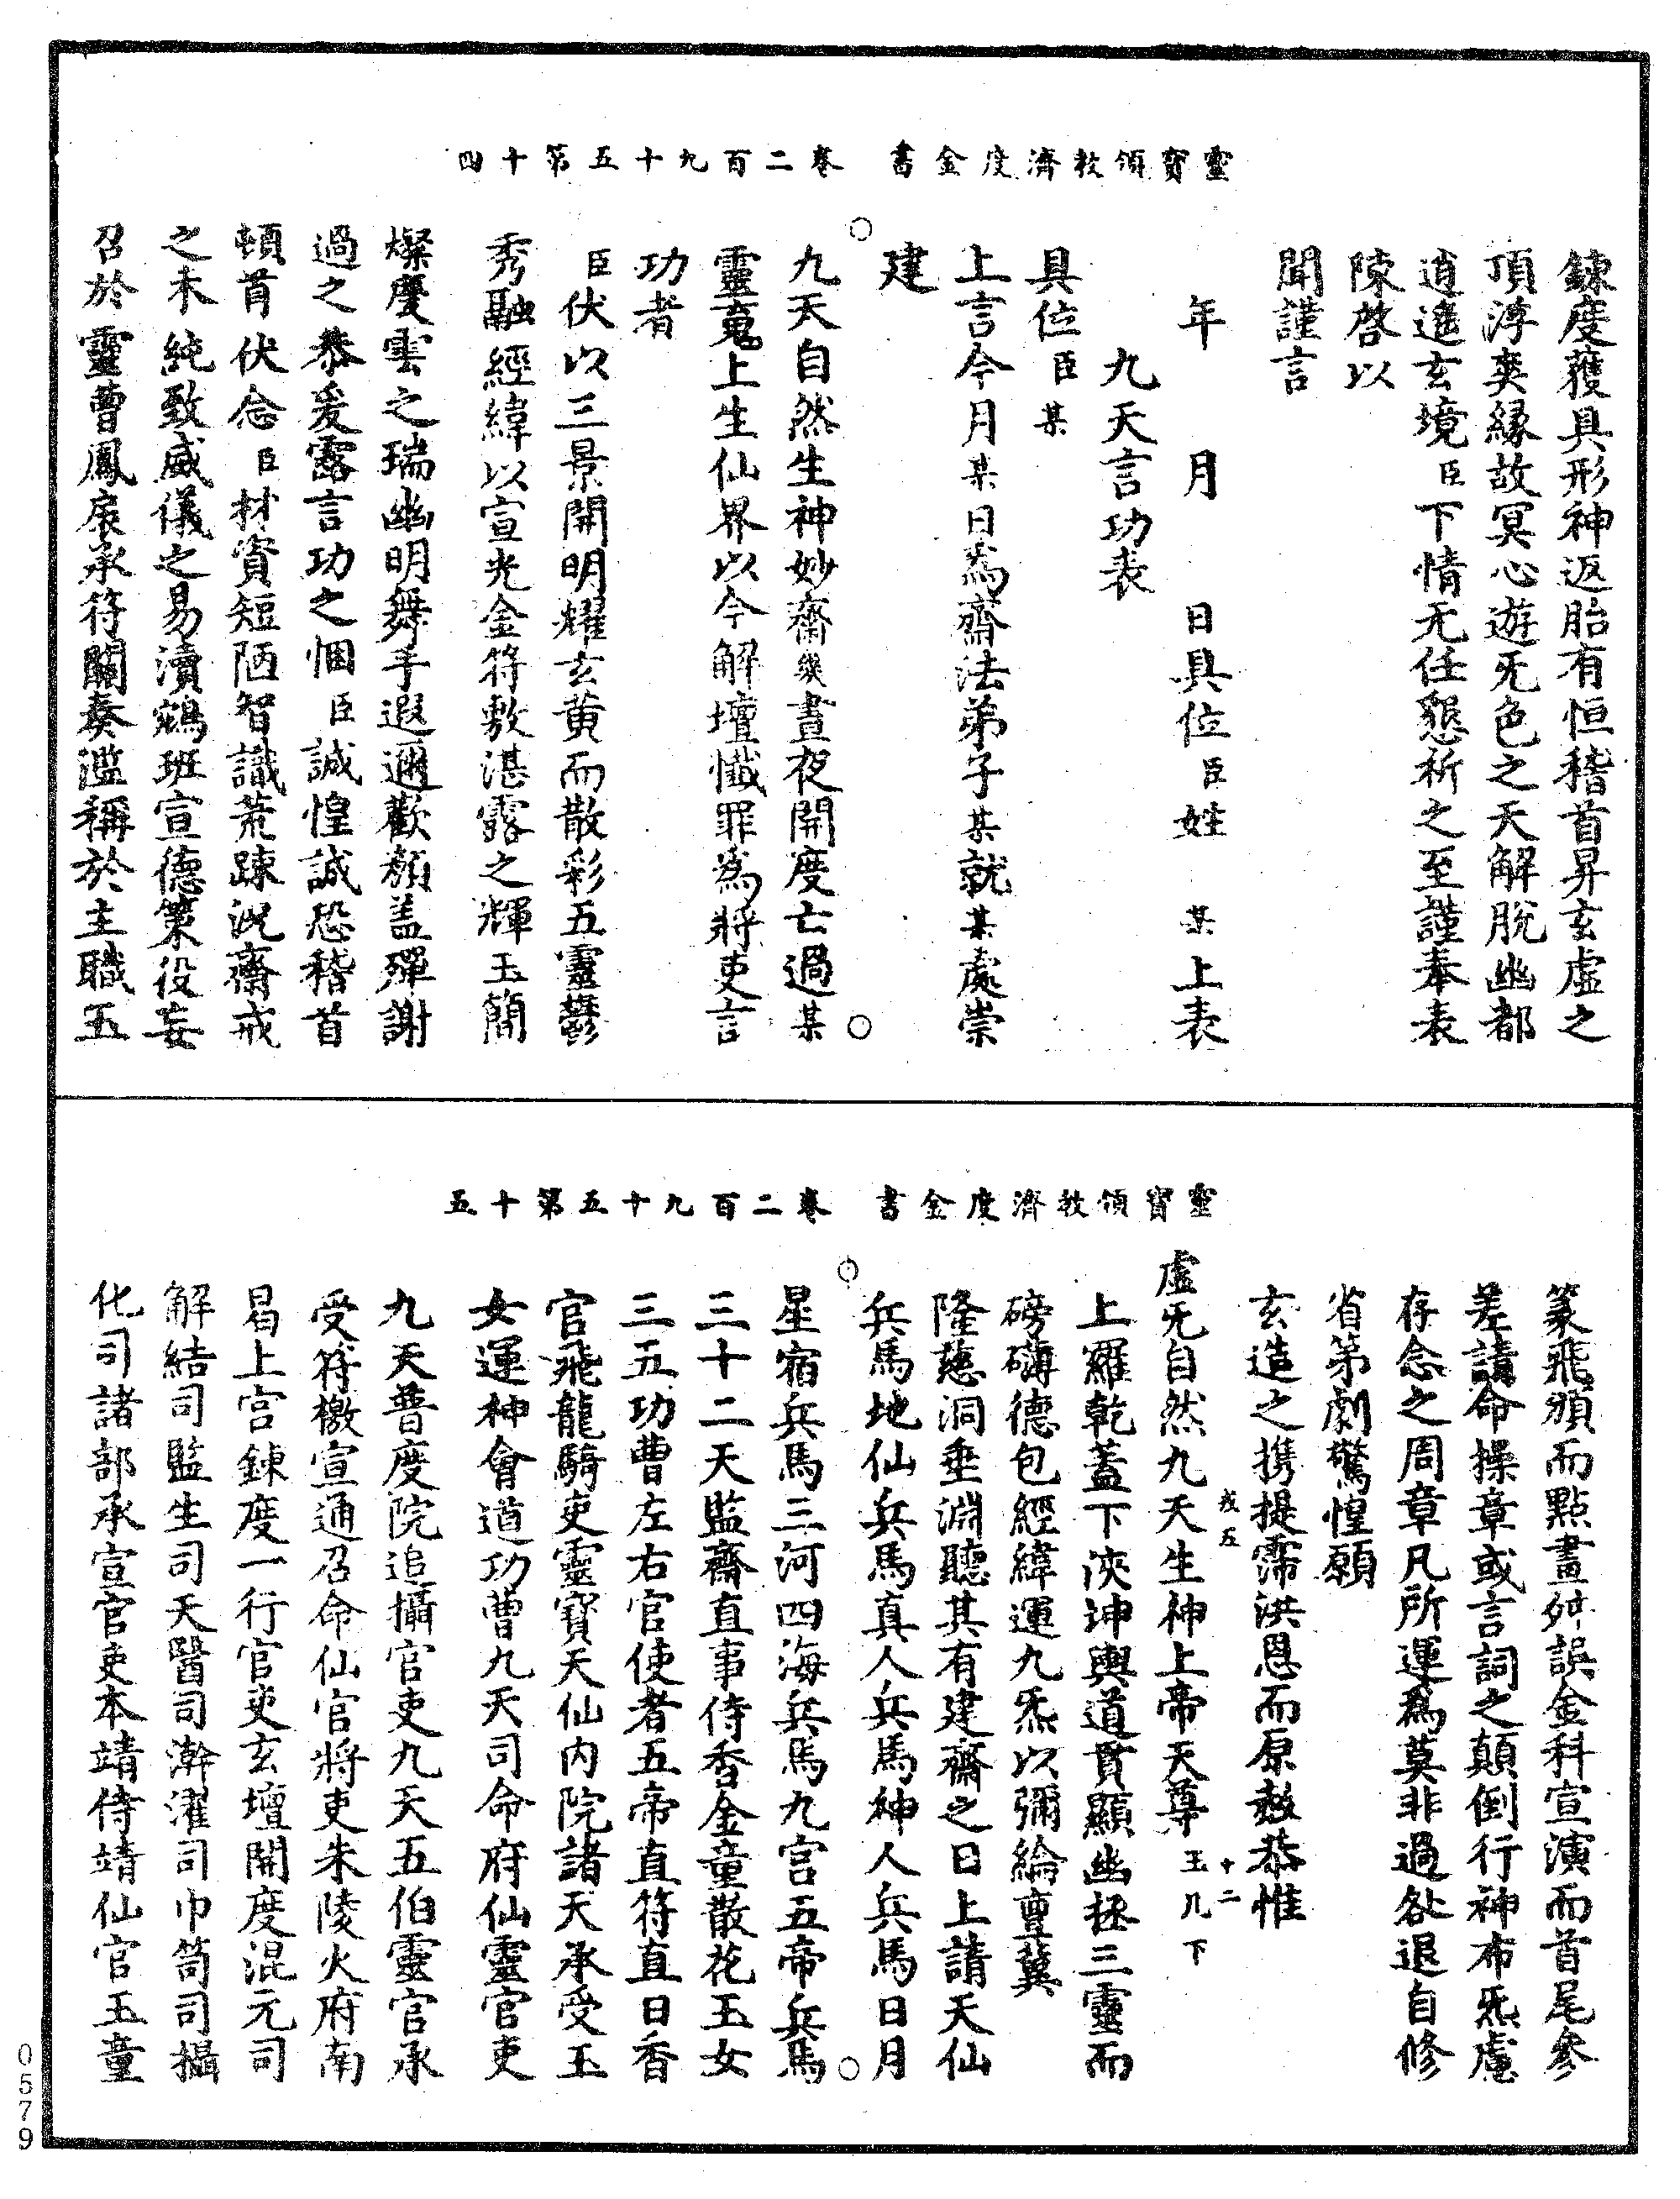 靈寶領教濟度金書　卷二百九十五第十四
鍊度獲具形神返胎有恒稽首昇玄虛之
頂渟爽縁故冥心遊旡色之天解脫幽都
逍遙玄境臣下情无任懇祈之至謹奉表
陳啓以
聞謹言
年　月　日具位臣姓　某上表
九天言功表
具位臣某
上言今月某日為齋法弟子某就某處崇
建
九天自然生神妙齋幾晝夜開度亡過某
靈䰟上生仙界以今解壇懺罪為將吏言
功者
臣伏以三景開明耀玄黄而散彩五靈鬱
秀融經緯以宣光金符敷湛露之輝玉簡
燦慶雲之瑞幽明舞手遐邇歡顏盖殫謝
過之恭爰露言功之悃臣誠惶誠恐稽首
頓首伏念臣材資短陋智識荒踈況齋戒
之未純致威儀之易瀆鵷班宣德策役妄
召於靈曹鳳扆承符關奏濫稱於主職五
靈寶領教濟度金書　卷二百九十五第十五
篆飛頒而點畫舛誤金科宣演而首尾參
差請命操章或言詞之顛倒行神布炁慮
存念之周章凡所運爲莫非過咎退自修
省第劇驚惶願
玄造之携提霈洪恩而原赦恭惟
虛旡自然九天生神上帝天尊玉几下
上羅乾蓋下浹坤輿道貫顯幽拯三靈而
磅礴德包經緯運九炁以彌綸亶冀
隆慈洞垂淵聽其有建齋之日上請天仙
兵馬地仙兵馬真人兵馬神人兵馬日月
星宿兵馬三河四海兵馬九宫五帝兵馬
三十二天監齋直事侍香金童散花玉女
三五功曹左右官使者五帝直符直日香
官飛龍騎吏靈寶天仙内院諸天承受玉
女運神會道功曹九天司命府仙靈官吏
九天普度院追攝官吏九天五伯靈官承
受符檄宣通召命仙官將吏朱陵火府南
昌上宫鍊度一行官吏玄壇開度混元司
解結司監生司天醫司澣濯司巾笥司攝
化司諸部承宣官吏本靖侍靖仙官玉童
戎五
十二
0579